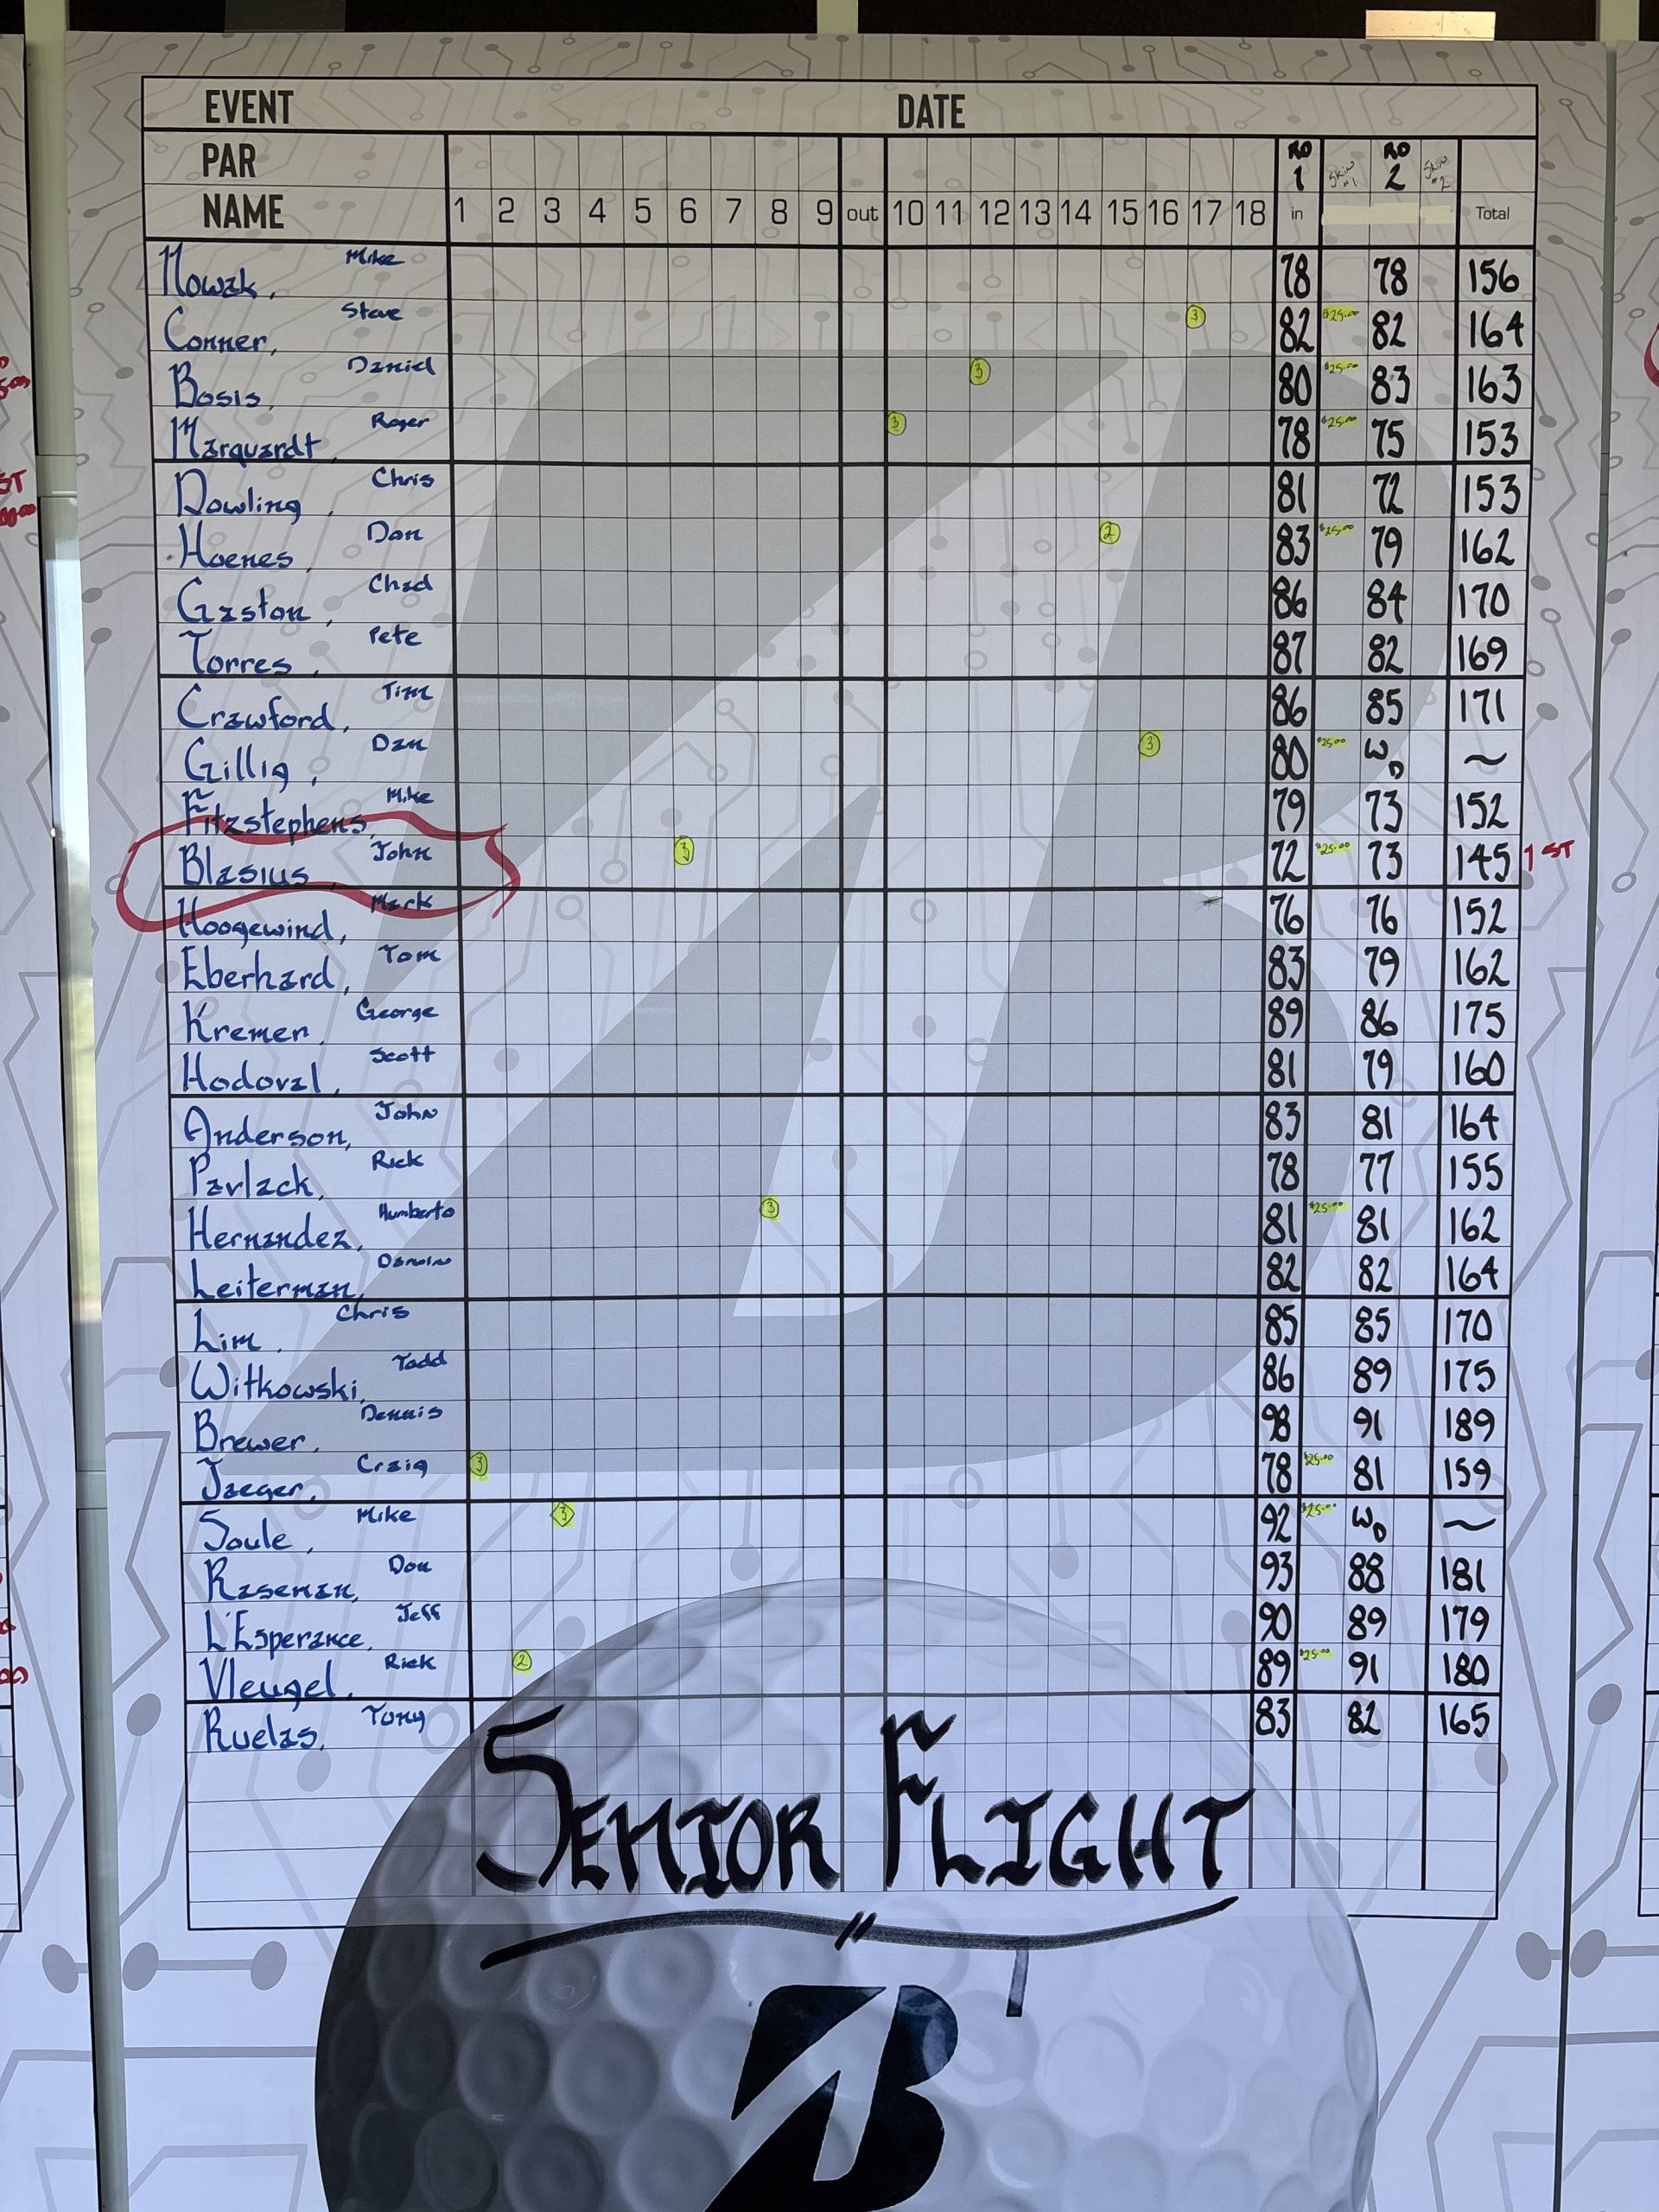 EVENT DATE
PAR RD 1 Skin #1 RD 2 Skin #2
NAME 1 2 3 4 5 6 7 8 9 out 10 11 12 13 14 15 16 17 18 in Total
Nowak, Mike 78 78 156
Conner, Steve 3 82 $25.00 82 164
Bosis, Daniel 3 80 $25.00 83 163
Marquardt, Roger 3 78 $25.00 75 153
Dowling, Chris 81 72 153
Hoenes, Don 2 83 $25.00 79 162
Gaston, Chad 86 84 170
Torres, Pete 87 82 169
Crawford, Tim 86 85 171
Gillig, Dan 3 80 $25.00 WD ~
Fitzstephens, Mike 79 73 152
Blasius, John 3 72 $25.00 73 145 1ST
Hoogewind, Mark 76 76 152
Eberhard, Tom 83 79 162
Kremer, George 89 86 175
Hodoval, Scott 81 79 160
Anderson, John 83 81 164
Pavlack, Rick 78 77 155
Hernandez, Humberto 3 81 $25.00 81 162
Leiterman, 82 82 164
Lim, Chris 85 85 170
Witkowski, Todd 86 89 175
Brewer, Dennis 98 91 189
Jaeger, Craig 3 78 $25.00 81 159
Soule, Mike 3 92 $25.00 WD ~
Raseman, Don 93 88 181
L'Esperance, Jeff 90 89 179
Vleugel, Rick 2 89 $25.00 91 180
Ruelas, Tony 83 82 165
SENIOR FLIGHT
B